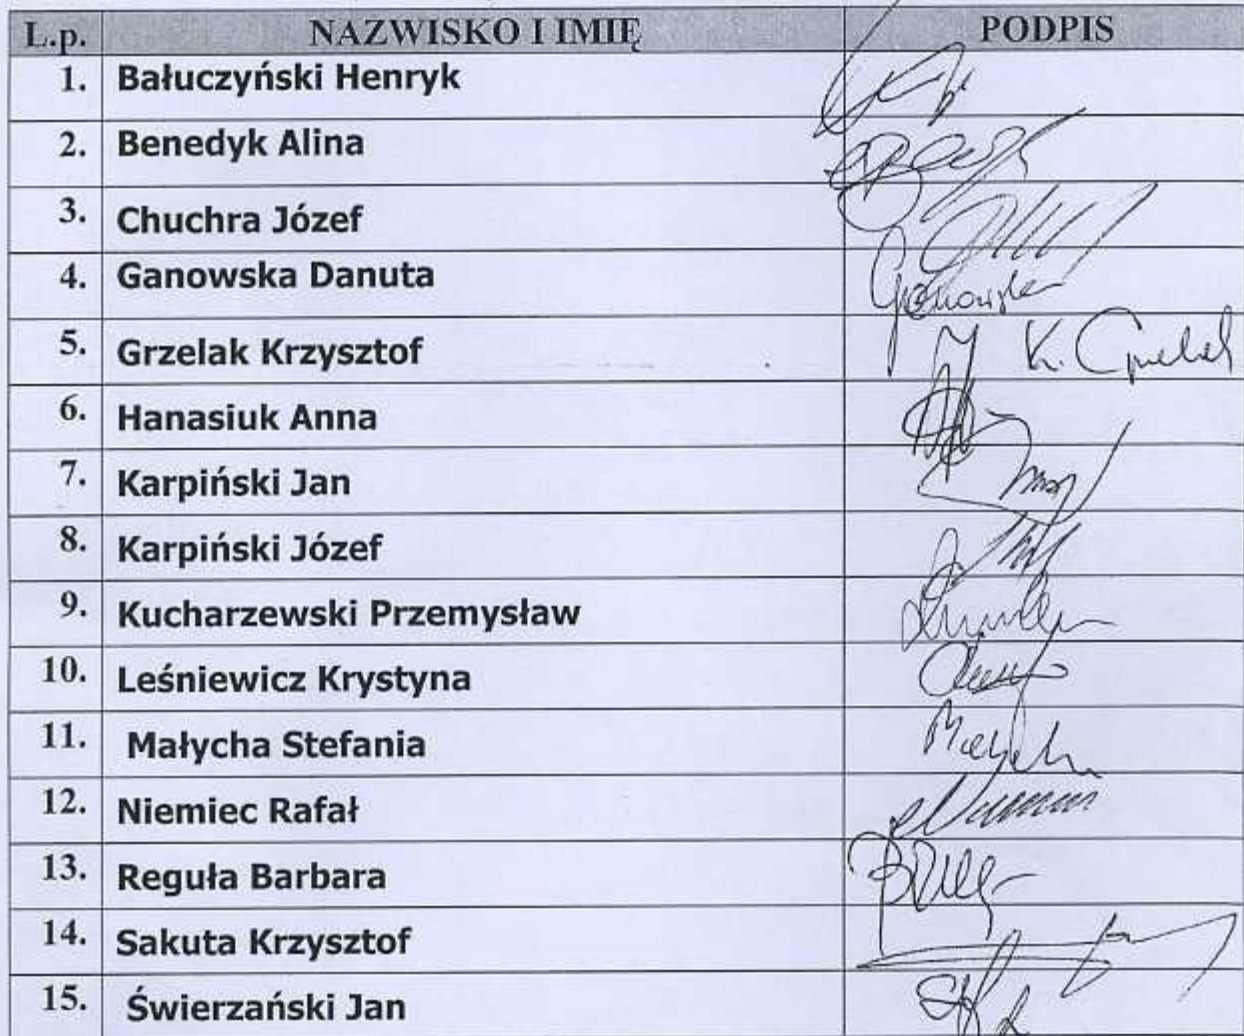 L.p. NAZWISKO I IMIĘ PODPIS
1. Bałuczyński Henryk
2. Benedyk Alina
3. Chuchra Józef
4. Ganowska Danuta Ganowska
5. Grzelak Krzysztof K. Grzelak
6. Hanasiuk Anna
7. Karpiński Jan
8. Karpiński Józef
9. Kucharzewski Przemysław
10. Leśniewicz Krystyna
11. Małycha Stefania
12. Niemiec Rafał
13. Reguła Barbara
14. Sakuta Krzysztof
15. Świerzański Jan